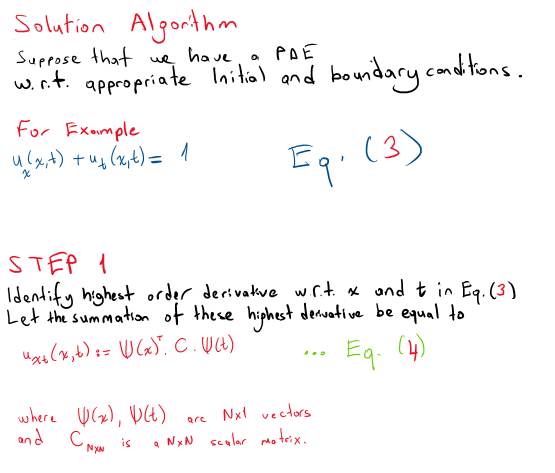 Solution Algorithm
Suppose that we have a PDE
w.r.t. appropriate Initial and boundary conditions.
For Example
u_x(x,t) + u_t(x,t) = 1 Eq. (3)
STEP 1
Identify highest order derivative w.r.t. x and t in Eq.(3)
Let the summation of these highest derivative be equal to
u_xt(x,t) := Ψ(x)^T. C. Ψ(t) ... Eq. (4)
where Ψ(x), Ψ(t) are Nx1 vectors
and C_NxN is a NxN scalar matrix.